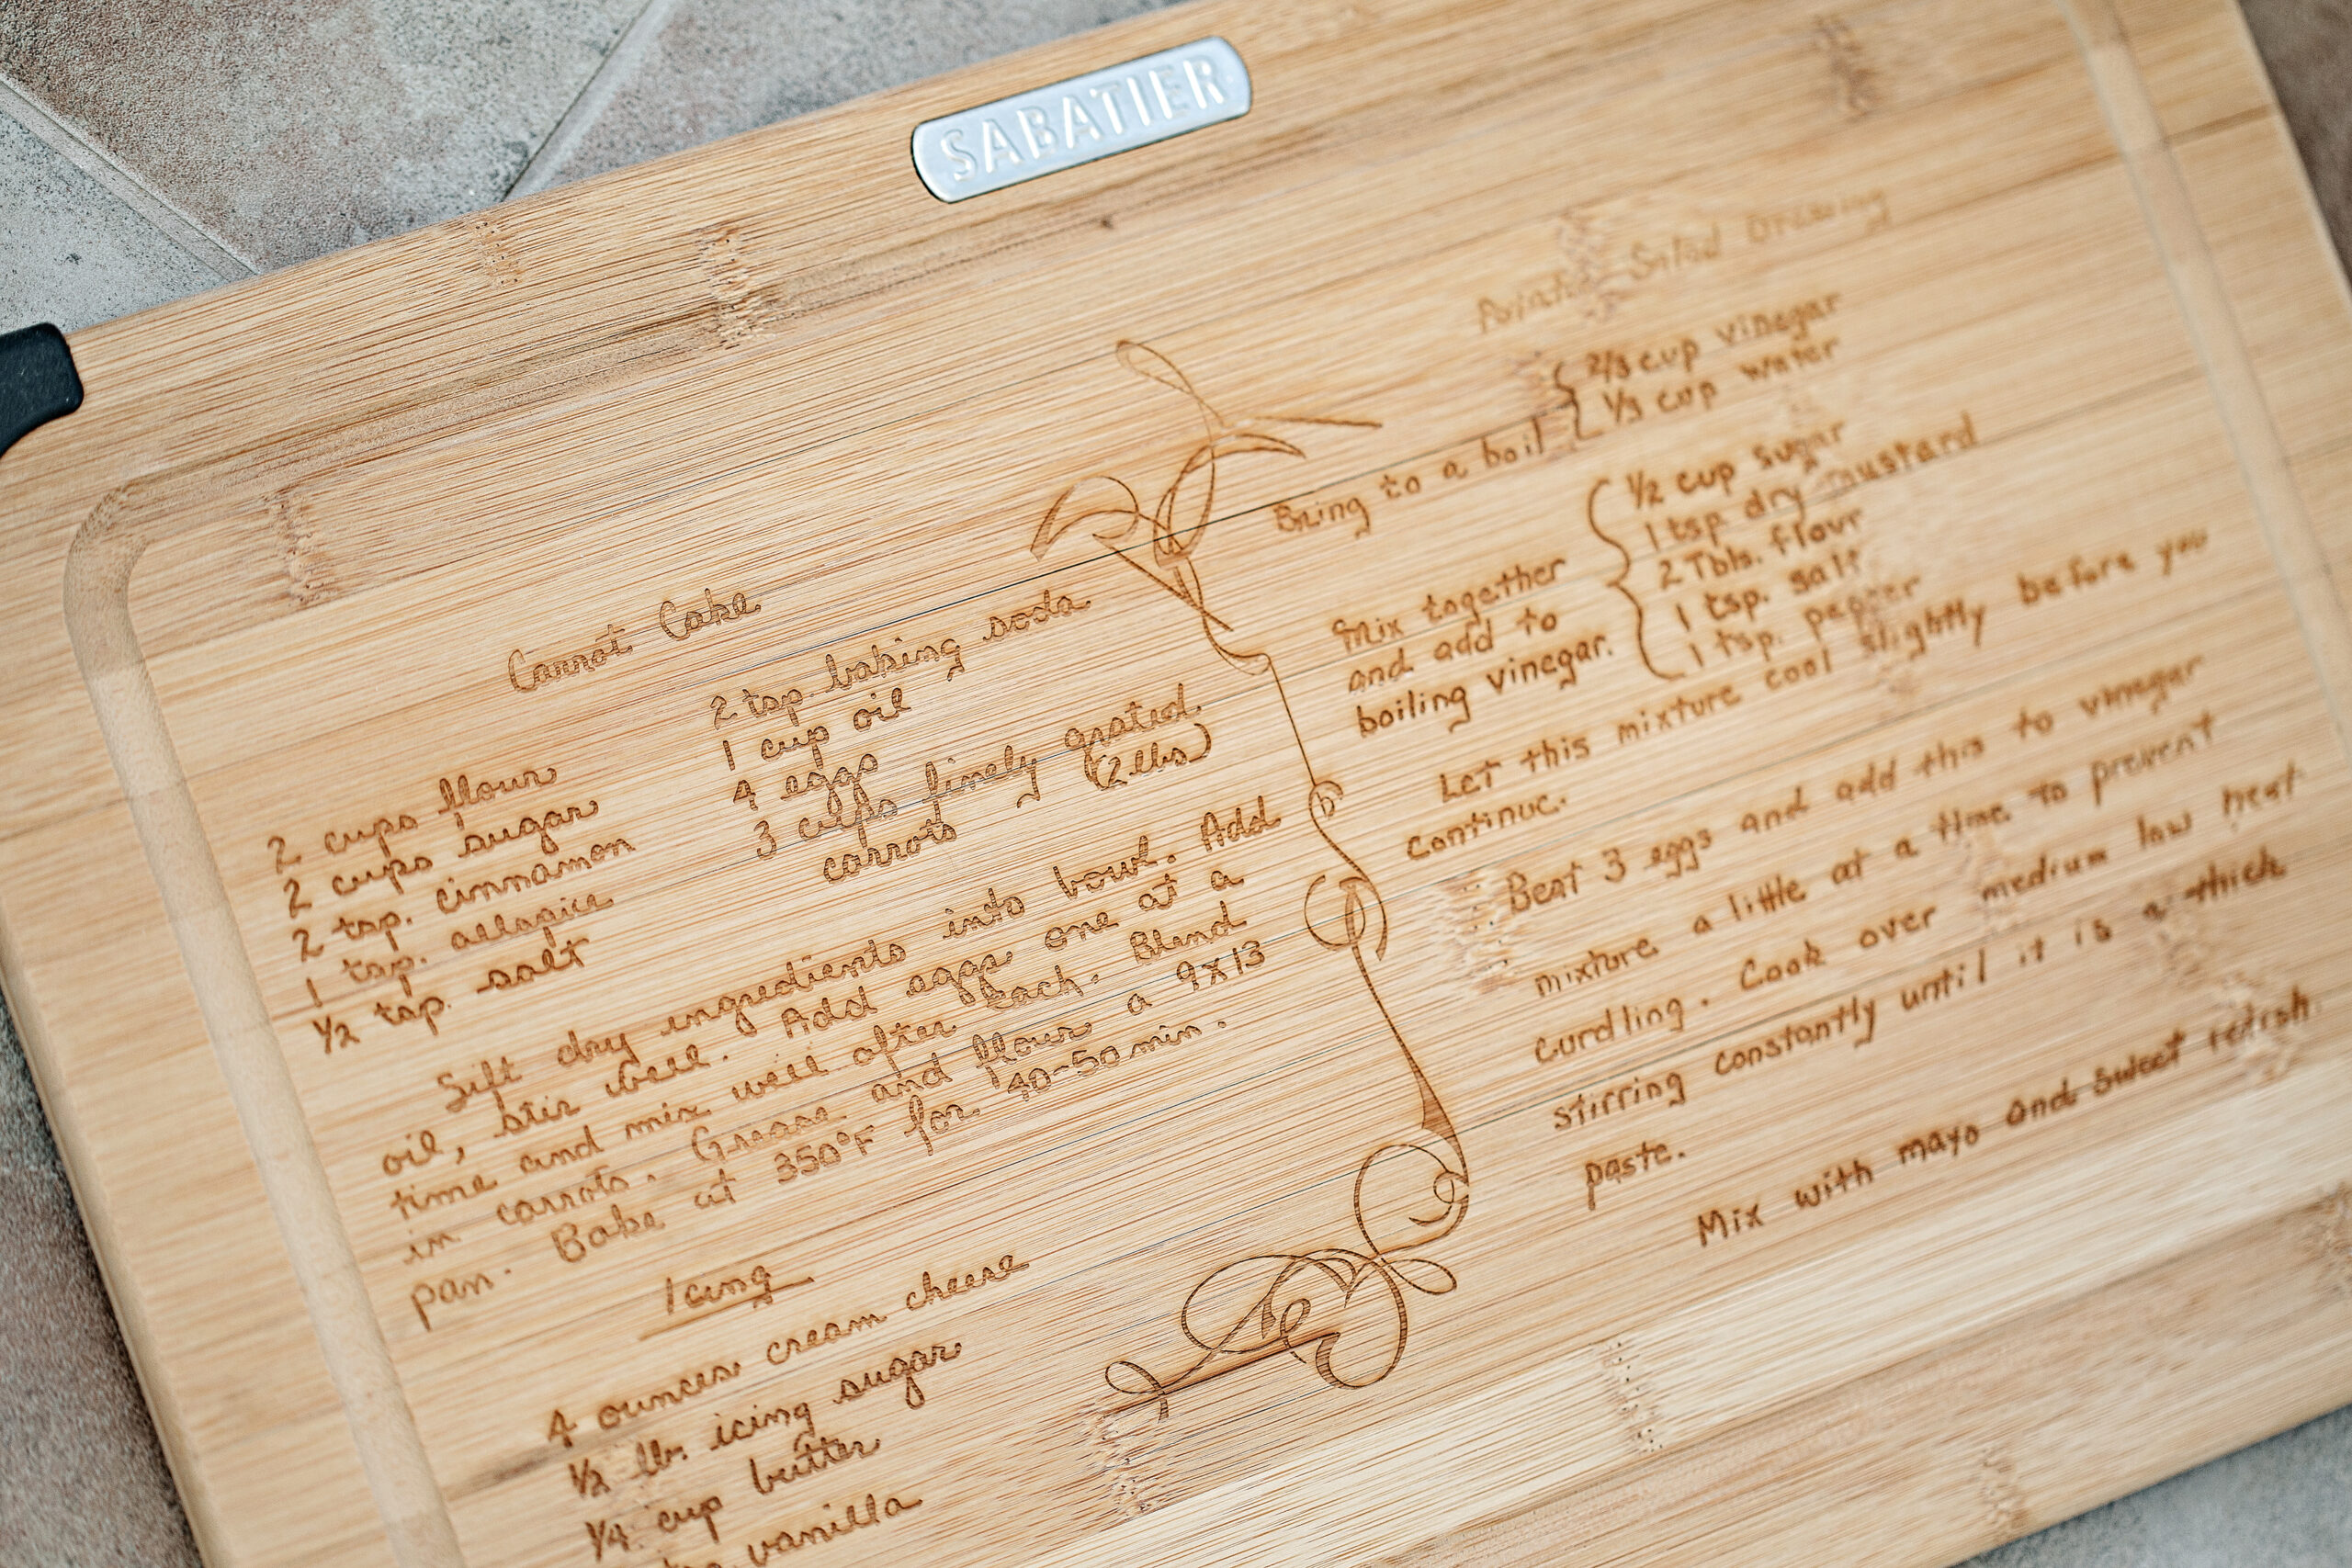 SABATIER
Carrot Cake
2 cups flour
2 cups sugar
2 tsp. cinnamon
1 tsp. allspice
1/2 tsp. salt
2 tsp. baking soda
1 cup oil
4 eggs
3 cups finely grated
carrots (2 lbs)
Sift dry ingredients into bowl. Add
oil, stir well. Add eggs one at a
time and mix well after each. Blend
in carrots. Grease and flour a 9x13
pan. Bake at 350°F for 40-50 min.
Icing
4 ounces cream cheese
1/2 lb. icing sugar
1/4 cup butter
vanilla
Potato Salad Dressing
Bring to a boil { 2/3 cup vinegar
1/3 cup water
Mix together
and add to
boiling vinegar.
{ 1/2 cup sugar
1 tsp dry mustard
2 Tbls. flour
1 tsp. salt
1 tsp. pepper
Let this mixture cool slightly before you
continue.
Beat 3 eggs and add this to vinegar
mixture a little at a time to prevent
curdling. Cook over medium low heat
stirring constantly until it is a thick
paste.
Mix with mayo and sweet relish.